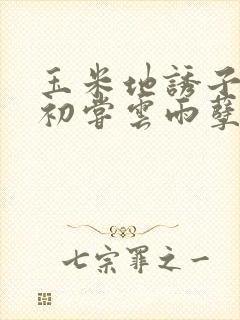 玉米地誘子
初嘗雲雨孽
七宗罪之一